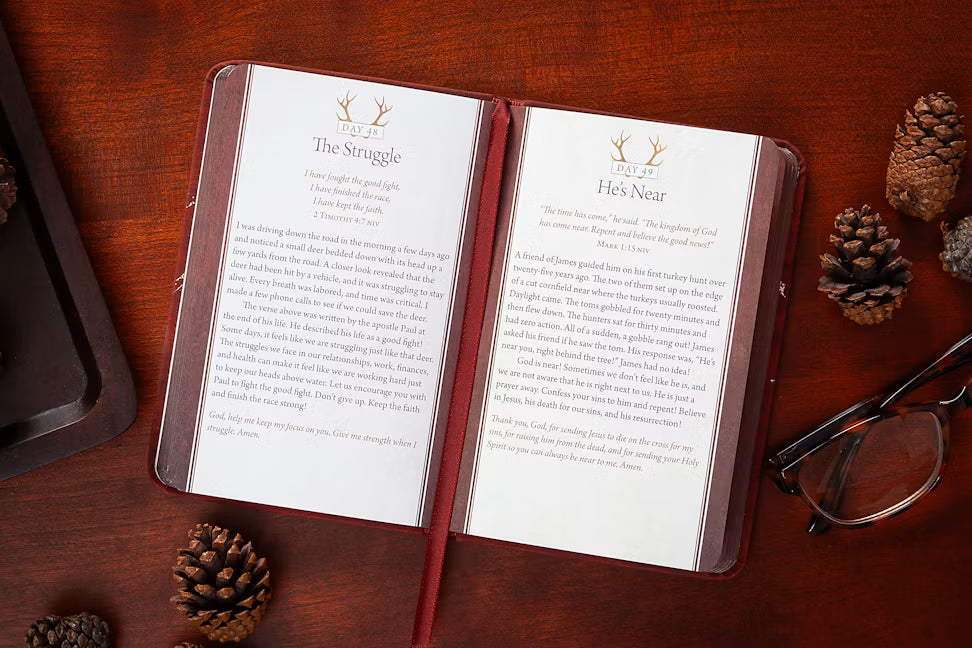 DAY 48
The Struggle
I have fought the good fight,
I have finished the race,
I have kept the faith.
2 TIMOTHY 4:7 NIV
I was driving down the road in the morning a few days ago
and noticed a small deer bedded down with its head up a
few yards from the road. A closer look revealed that the
deer had been hit by a vehicle, and it was struggling to stay
alive. Every breath was labored, and time was critical. I
made a few phone calls to see if we could save the deer.
The verse above was written by the apostle Paul at
the end of his life. He described his life as a good fight!
Some days, it feels like we are struggling just like that deer.
The struggles we face in our relationships, work, finances,
and health can make it feel like we are working hard just
to keep our heads above water. Let us encourage you with
Paul to fight the good fight. Don't give up. Keep the faith
and finish the race strong!
God, help me keep my focus on you. Give me strength when I
struggle. Amen.
DAY 49
He's Near
"The time has come," he said. "The kingdom of God
has come near. Repent and believe the good news!"
MARK 1:15 NIV
A friend of James guided him on his first turkey hunt over
twenty-five years ago. The two of them set up on the edge
of a cut cornfield near where the turkeys usually roosted.
Daylight came. The toms gobbled for twenty minutes and
then flew down. The hunters sat for thirty minutes and
had zero action. All of a sudden, a gobble rang out! James
asked his friend if he saw the tom. His response was, "He's
near you, right behind the tree!" James had no idea!
God is near! Sometimes we don't feel like he is, and
we are not aware that he is right next to us. He is just a
prayer away. Confess your sins to him and repent! Believe
in Jesus, his death for our sins, and his resurrection!
Thank you, God, for sending Jesus to die on the cross for my
sins, for raising him from the dead, and for sending your Holy
Spirit so you can always be near to me. Amen.